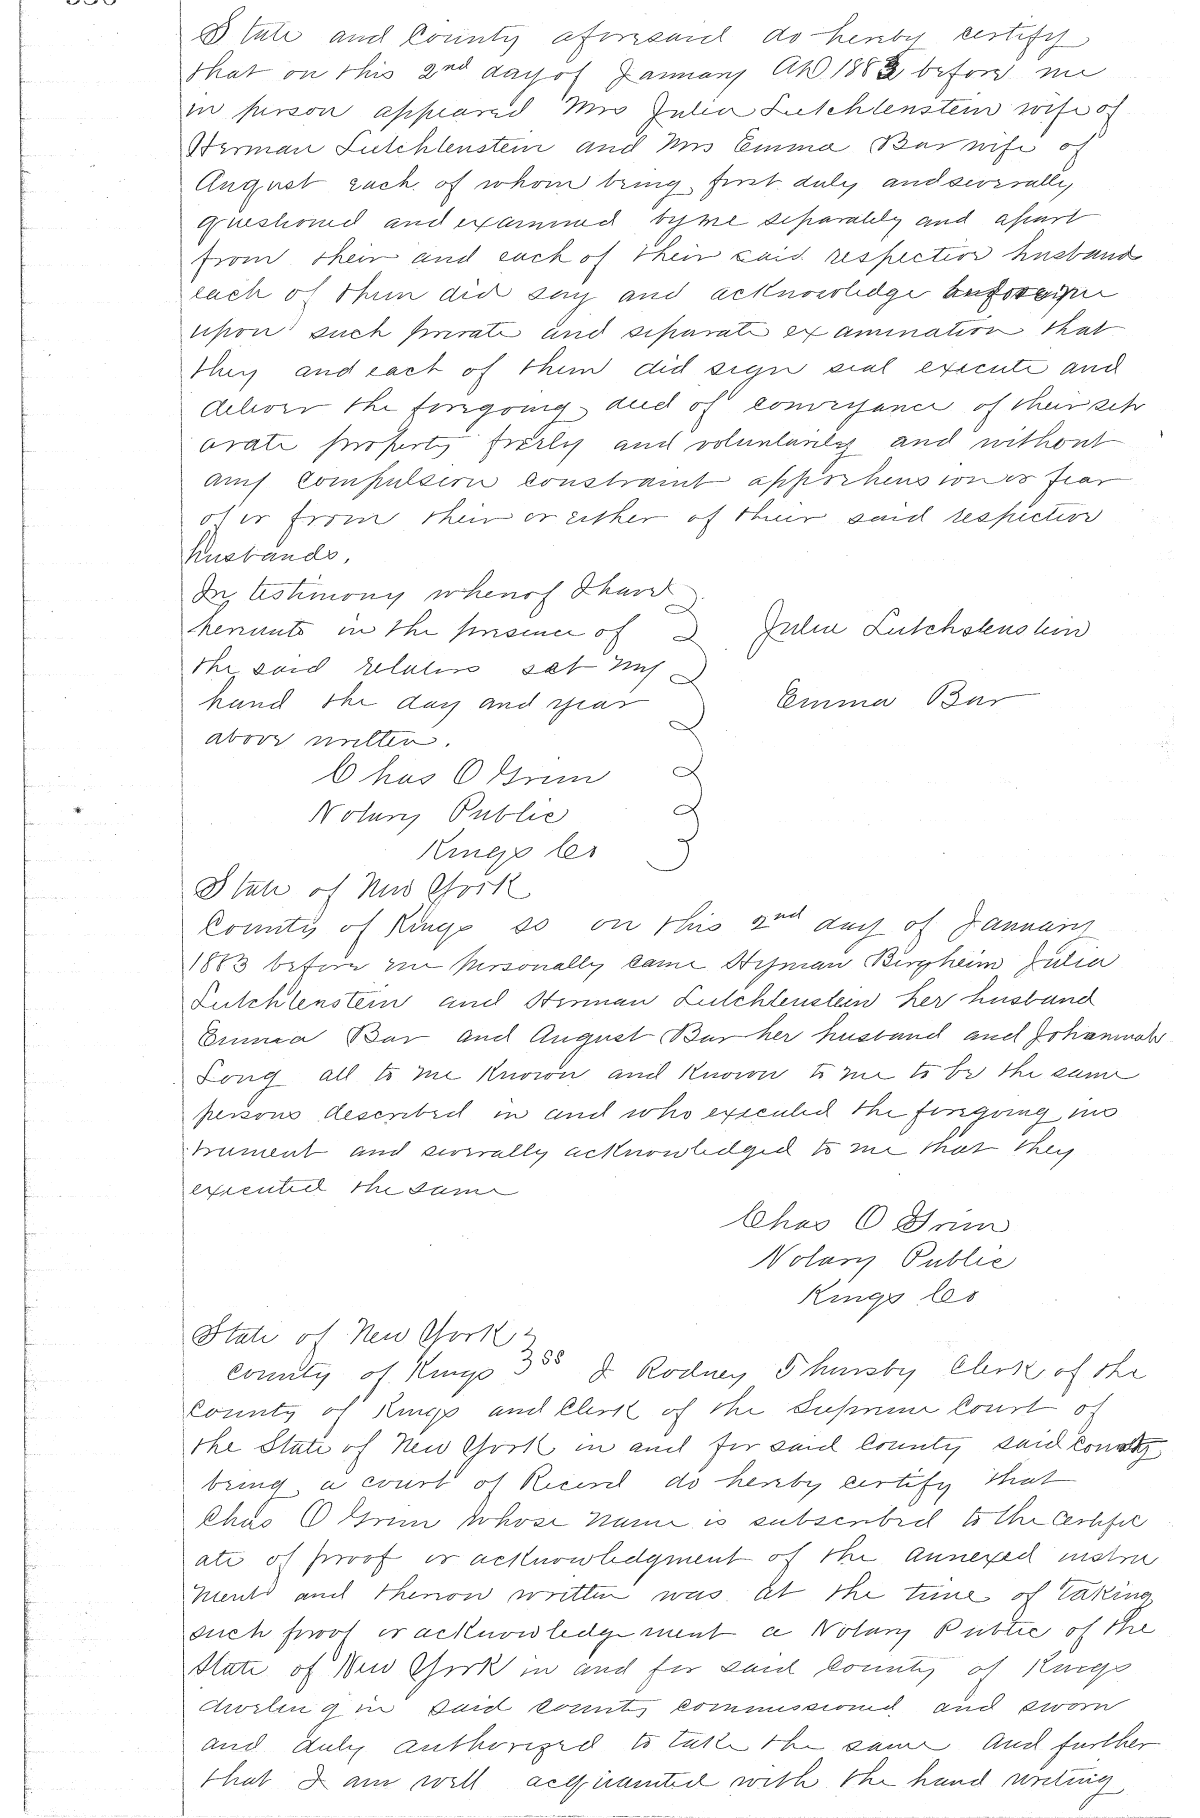 State and County aforesaid do hereby certify
that on this 2nd day of January AD 1883 before me
in person appeared Mrs Julia Lutchlenstein wife of
Herman Lutchlenstein and Mrs Emma Bar wife of
August each of whom being first duly and severally
questioned and examined by me separately and apart
from their and each of their said respective husbands
each of them did say and acknowledge
upon such private and separate examination that
they and each of them did sign seal execute and
deliver the foregoing deed of conveyance of their sep
arate property freely and voluntarily and without
any compulsion constraint apprehension or fear
of or from their or either of their said respective
husbands.
In testimony whereof I have
hereunto in the presence of Julia Lutchstenstein
the said relators set my
hand the day and year Emma Bar
above written.
Chas O Grim
Notary Public
Kings Co
State of New York
County of Kings ss on this 2nd day of January
1883 before me personally came Hyman Bergheim Julia
Lutchlenstein and Herman Lutchlenstein her husband
Emma Bar and August Bar her husband and Johannah
Long all to me known and known to me to be the same
persons described in and who executed the foregoing ins
trument and severally acknowledged to me that they
executed the same
Chas O Grim
Notary Public
Kings Co
State of New York
County of Kings ss I Rodney Thursby Clerk of the
County of Kings and Clerk of the Supreme Court of
the State of New York in and for said County said County
being a court of Record do hereby certify that
Chas O Grim whose name is subscribed to the certific
ate of proof or acknowledgment of the annexed instru
ment and thereon written was at the time of taking
such proof or acknowledgement a Notary Public of the
State of New York in and for said County of Kings
dweling in said county commissioned and sworn
and duly authorized to take the same And further
that I am well acquainted with the hand writing